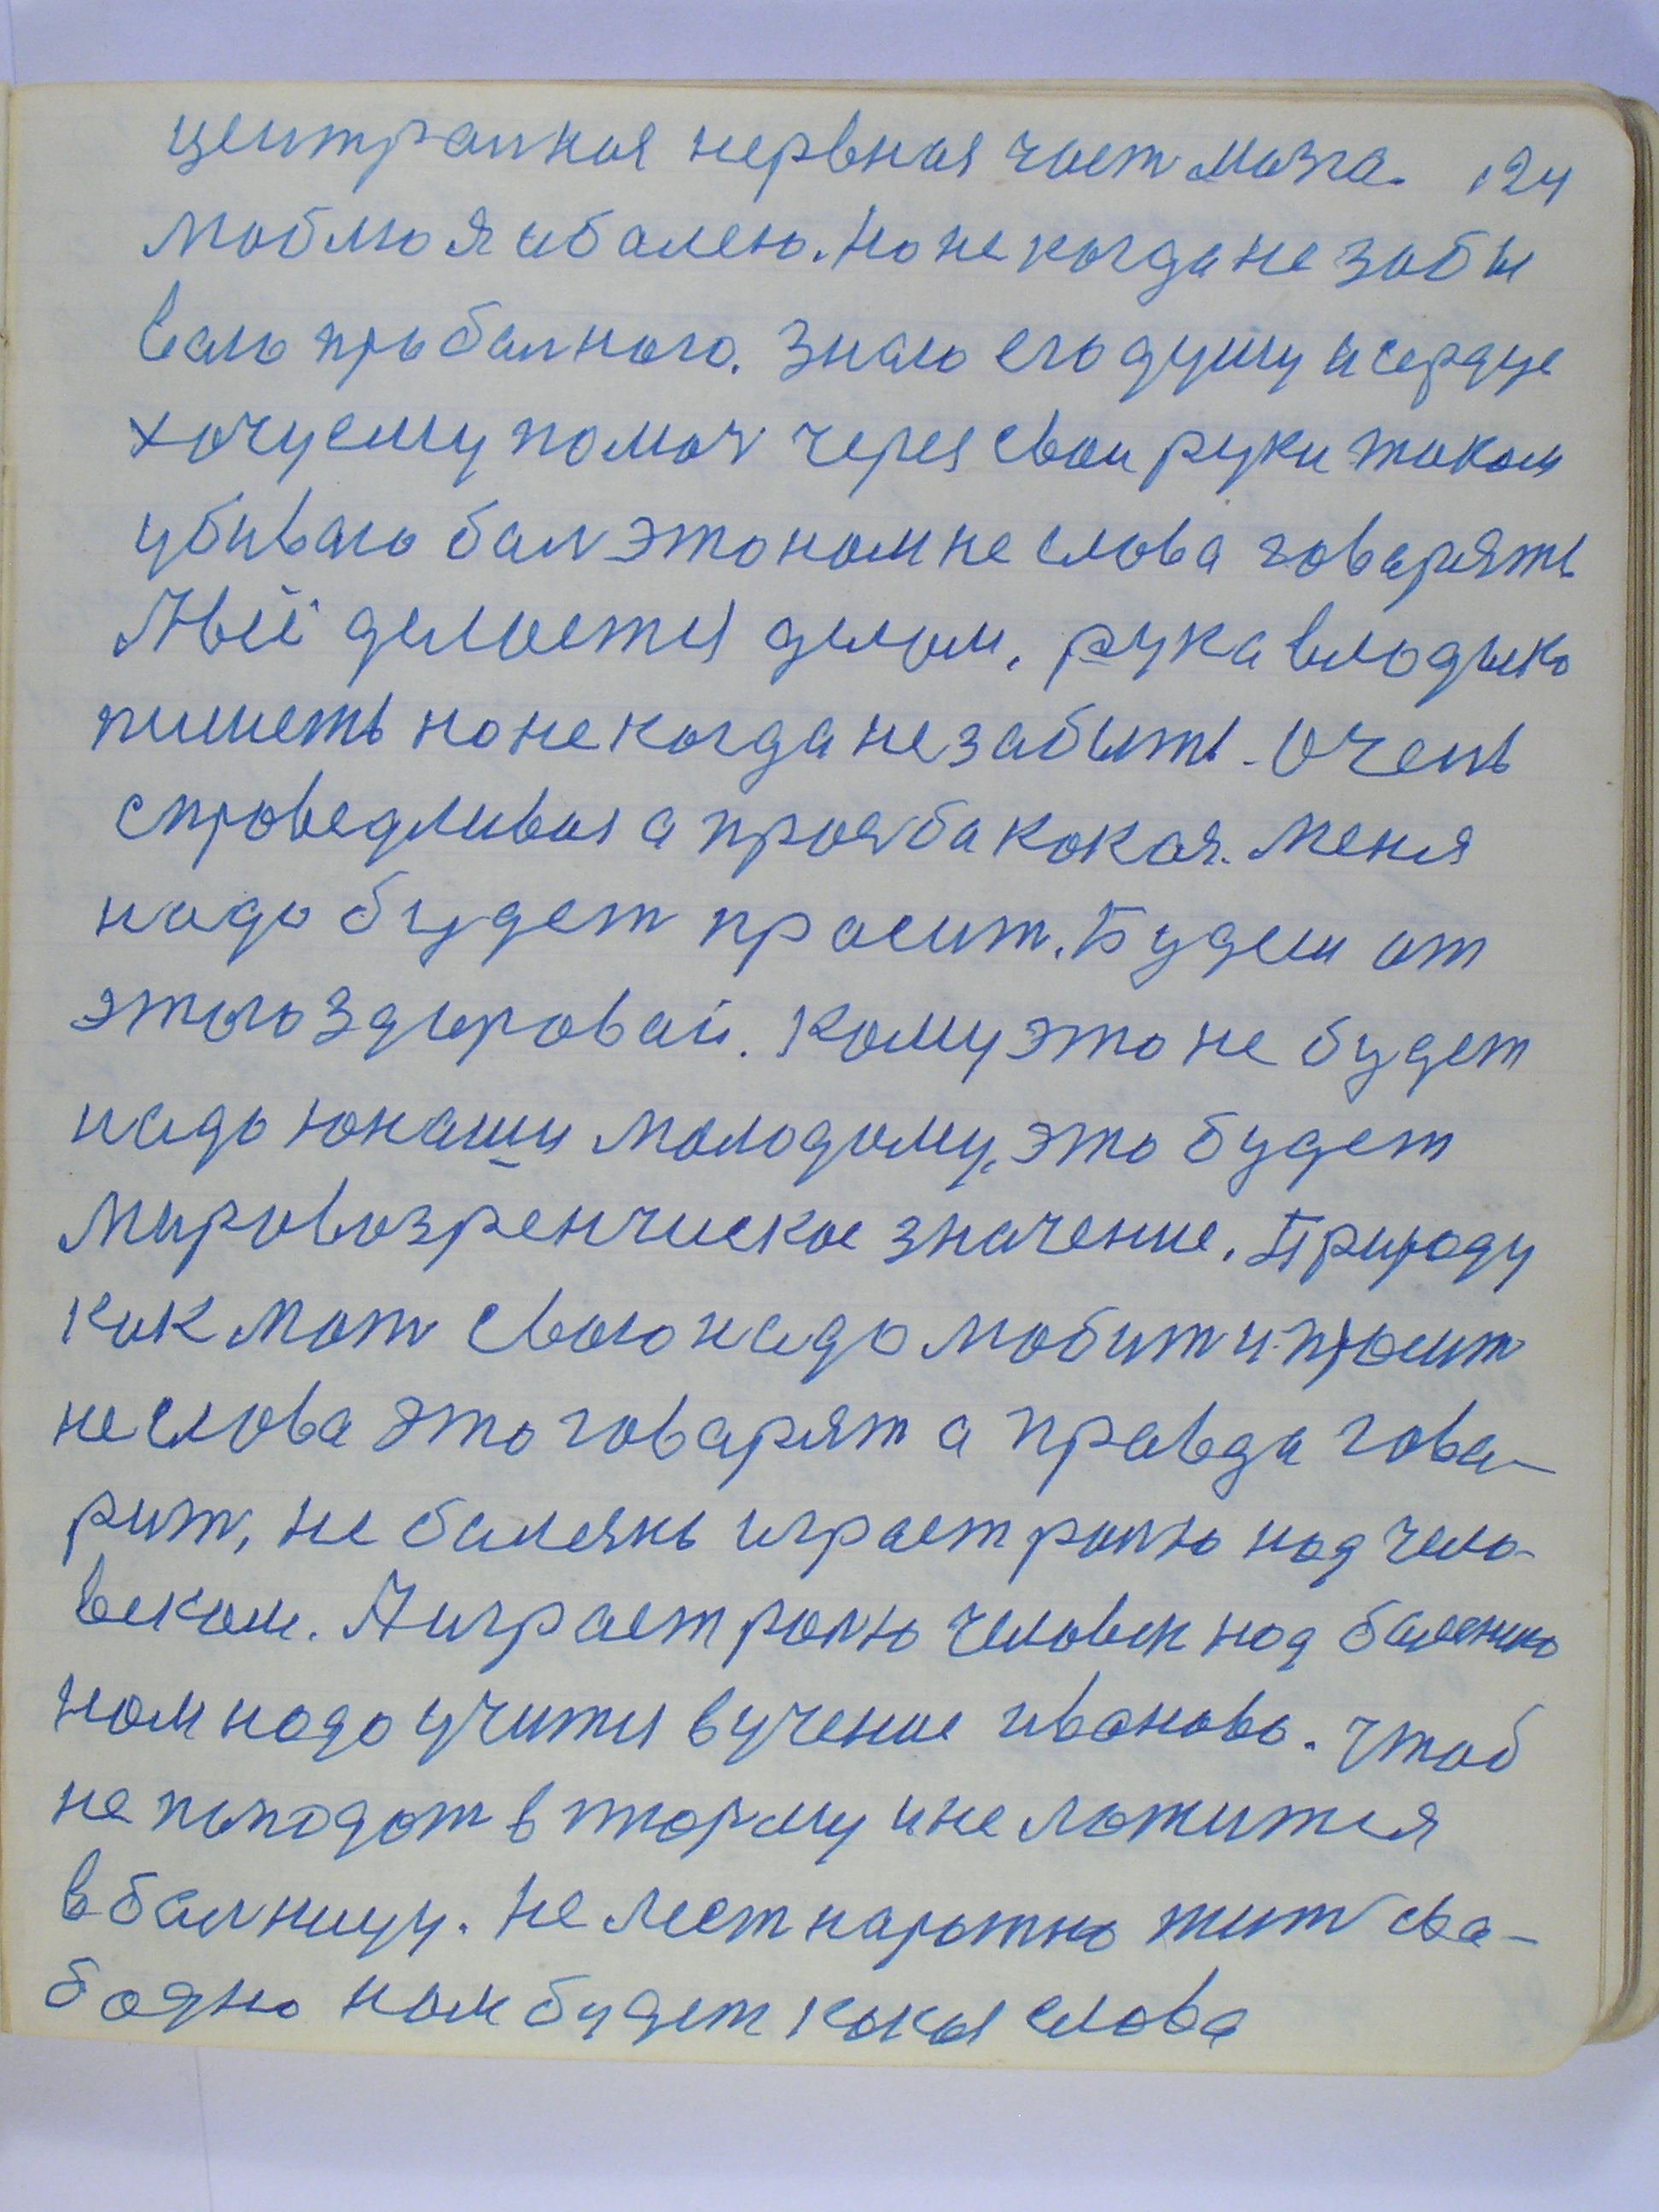 централная нервная част мозга. 124
люблю я и балею. Но не когда не забы
ваю про балного. Знаю его душу и сердце
хочу ему помоч через свои руки током
убиваю бал это нам не слова говарять
А всё делается делом. рука владыко
пишеть но не когда не забыть. Очень
справедливая а прозба какая. Меня
надо будет прасит. Будеш от
этого здоровай. Кому это не будет
надо юнаши молодому, это будет
мировозренческое значение. Природу
как мат свою надо любит и просит
не слова это говарят а правда гова-
рит, не балезнь играет ролю над чело-
веком. А играет ролю человек над балезню
нам надо учится в учение иваново. Чтоб
не попадат в тюрму и не ложится
в балницу. Не лест на рожно жит сва-
бодно нам будет какая слова